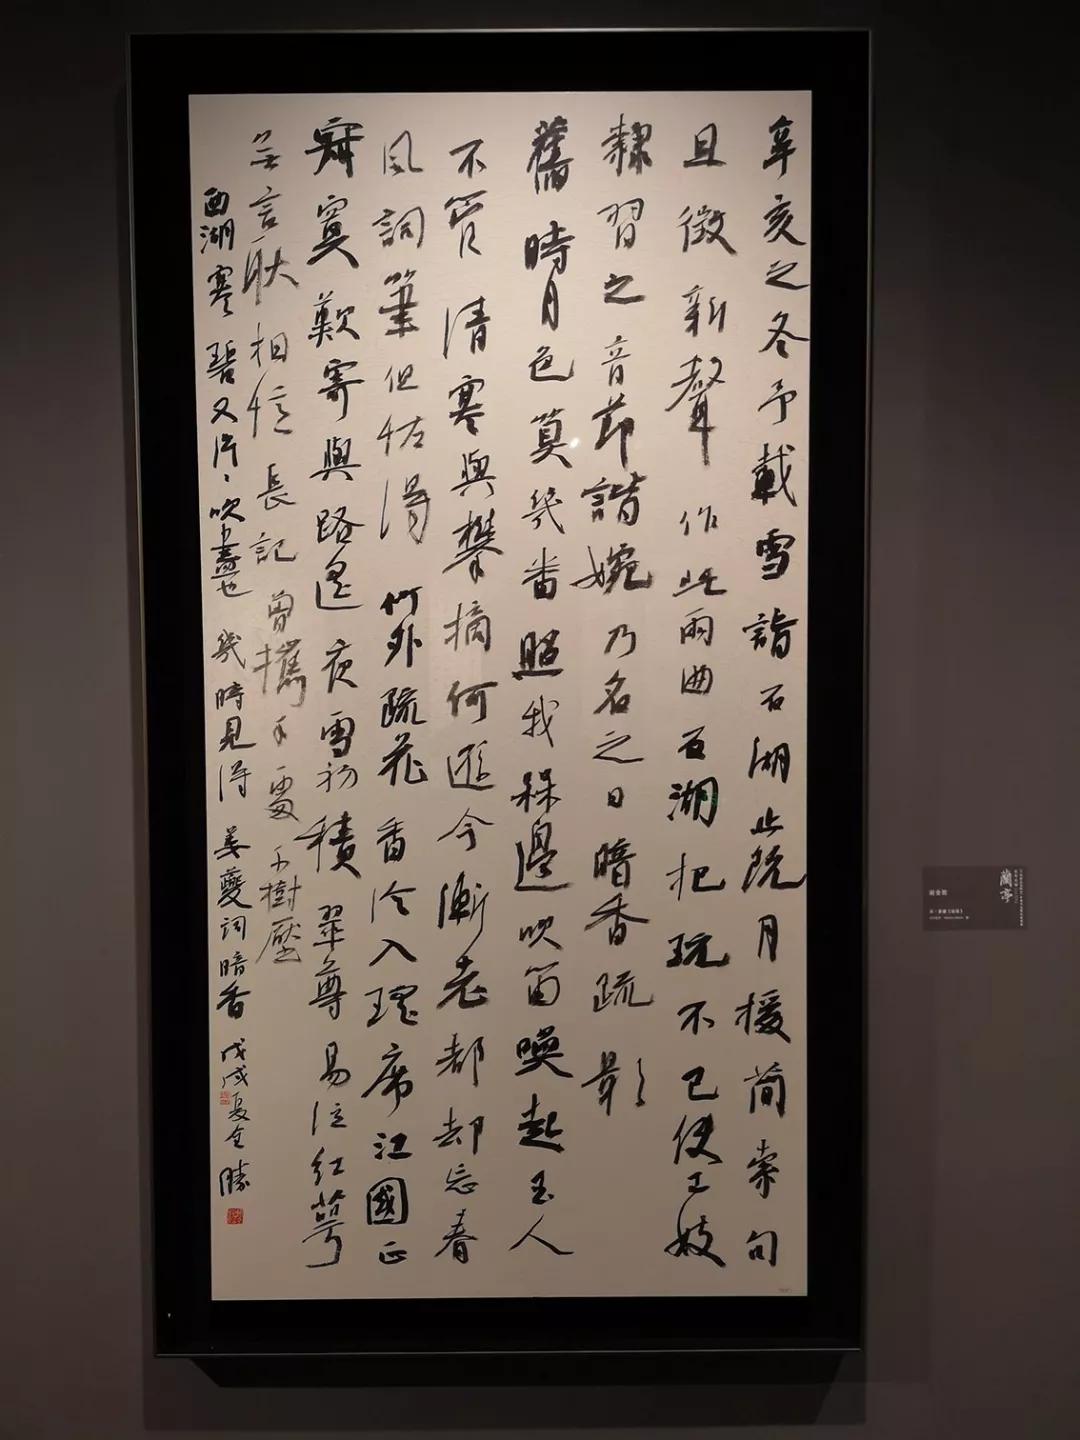 辛亥之冬予載雪詣石湖止既月授簡索句
且徵新聲作此兩曲石湖把玩不已使工妓
隸習之音節諧婉乃名之曰暗香疏影
舊時月色算幾番照我梅邊吹笛喚起玉人
不管清寒與攀摘何遜今漸老都却忘春
風詞筆但怪得竹外疏花香冷入瑤席江國正
寂寞歎寄與路遙夜雪初積翠尊易泣紅萼
無言耿相憶長記曾攜手處千樹壓
西湖寒碧又片、吹盡也幾時見得姜夔詞暗香戊戌夏金勝
蘭亭